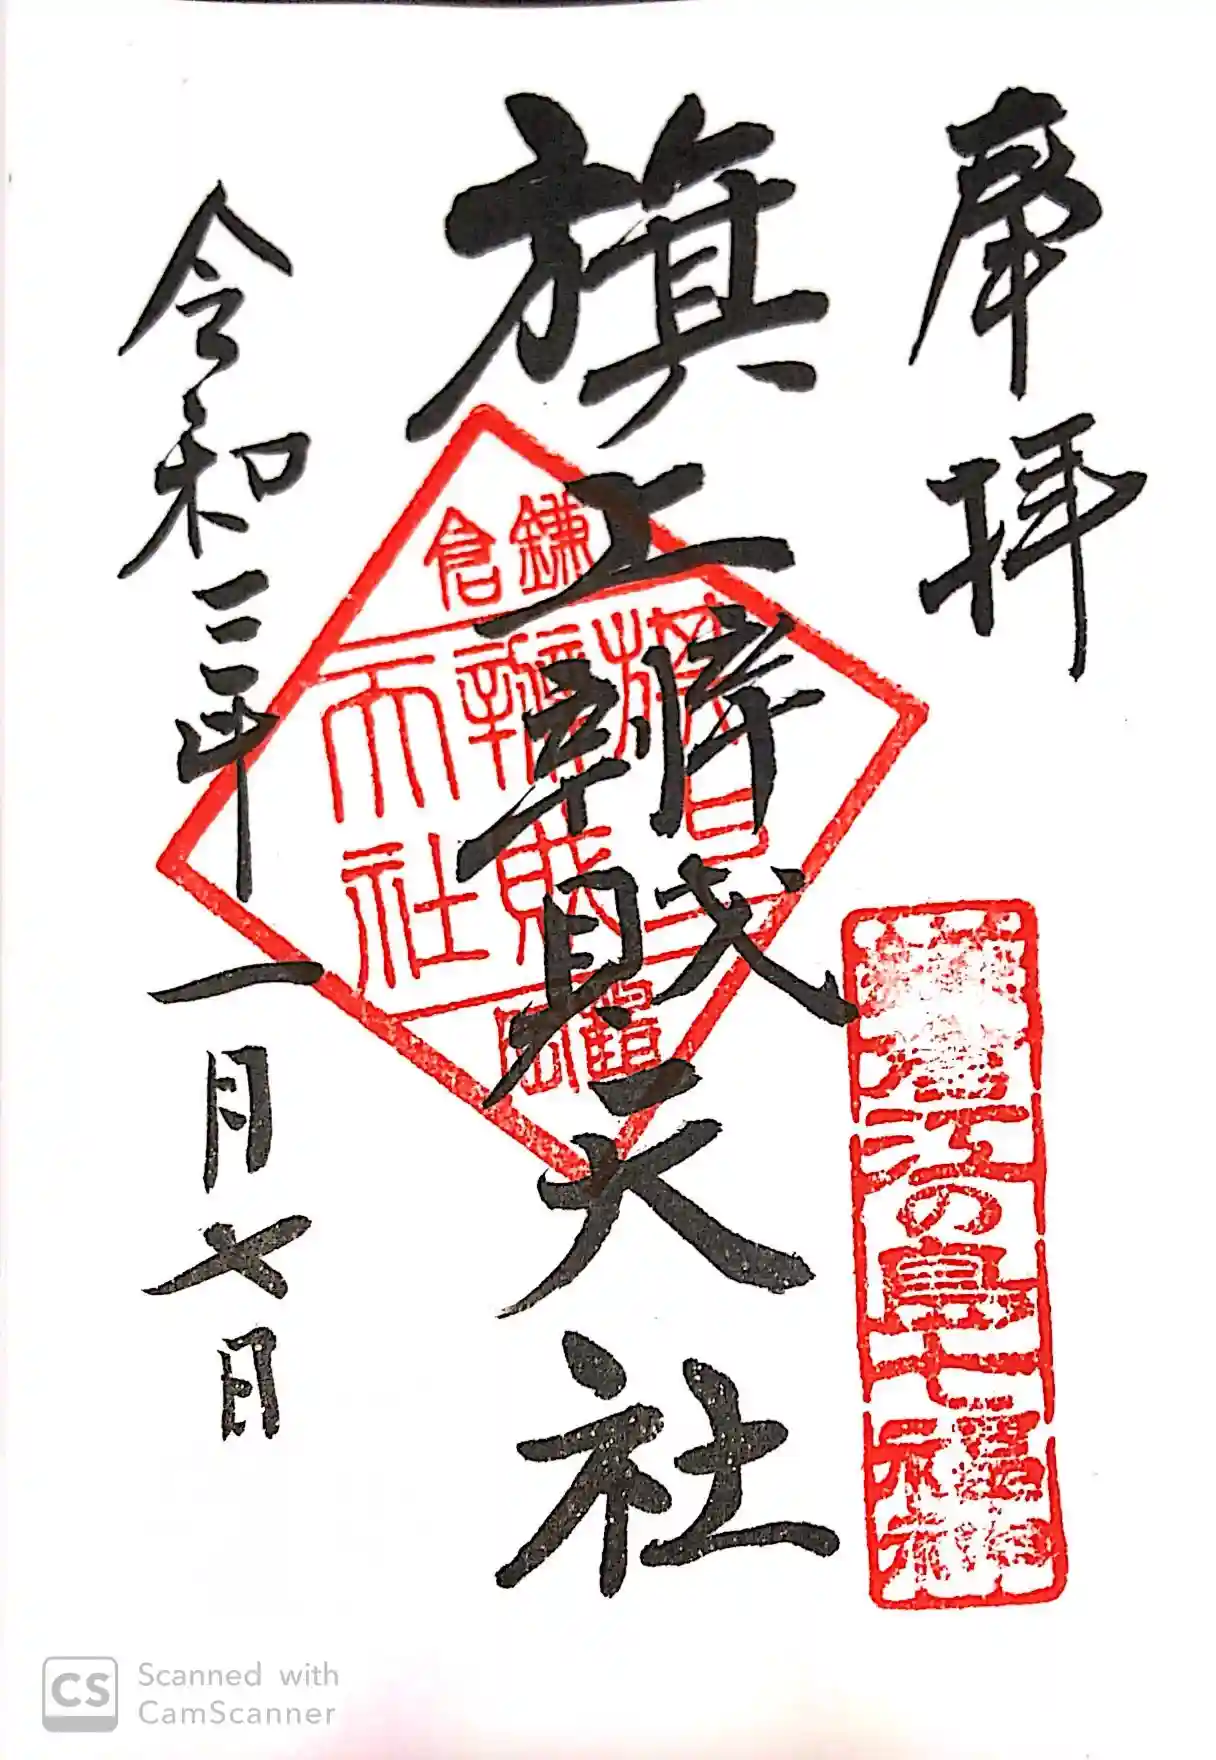 奉拝
旗上辨財天社
令和三年一月七日
鎌倉
旗上
辨財
天社
鶴岡
鎌倉江の島七福神
Scanned with
CamScanner